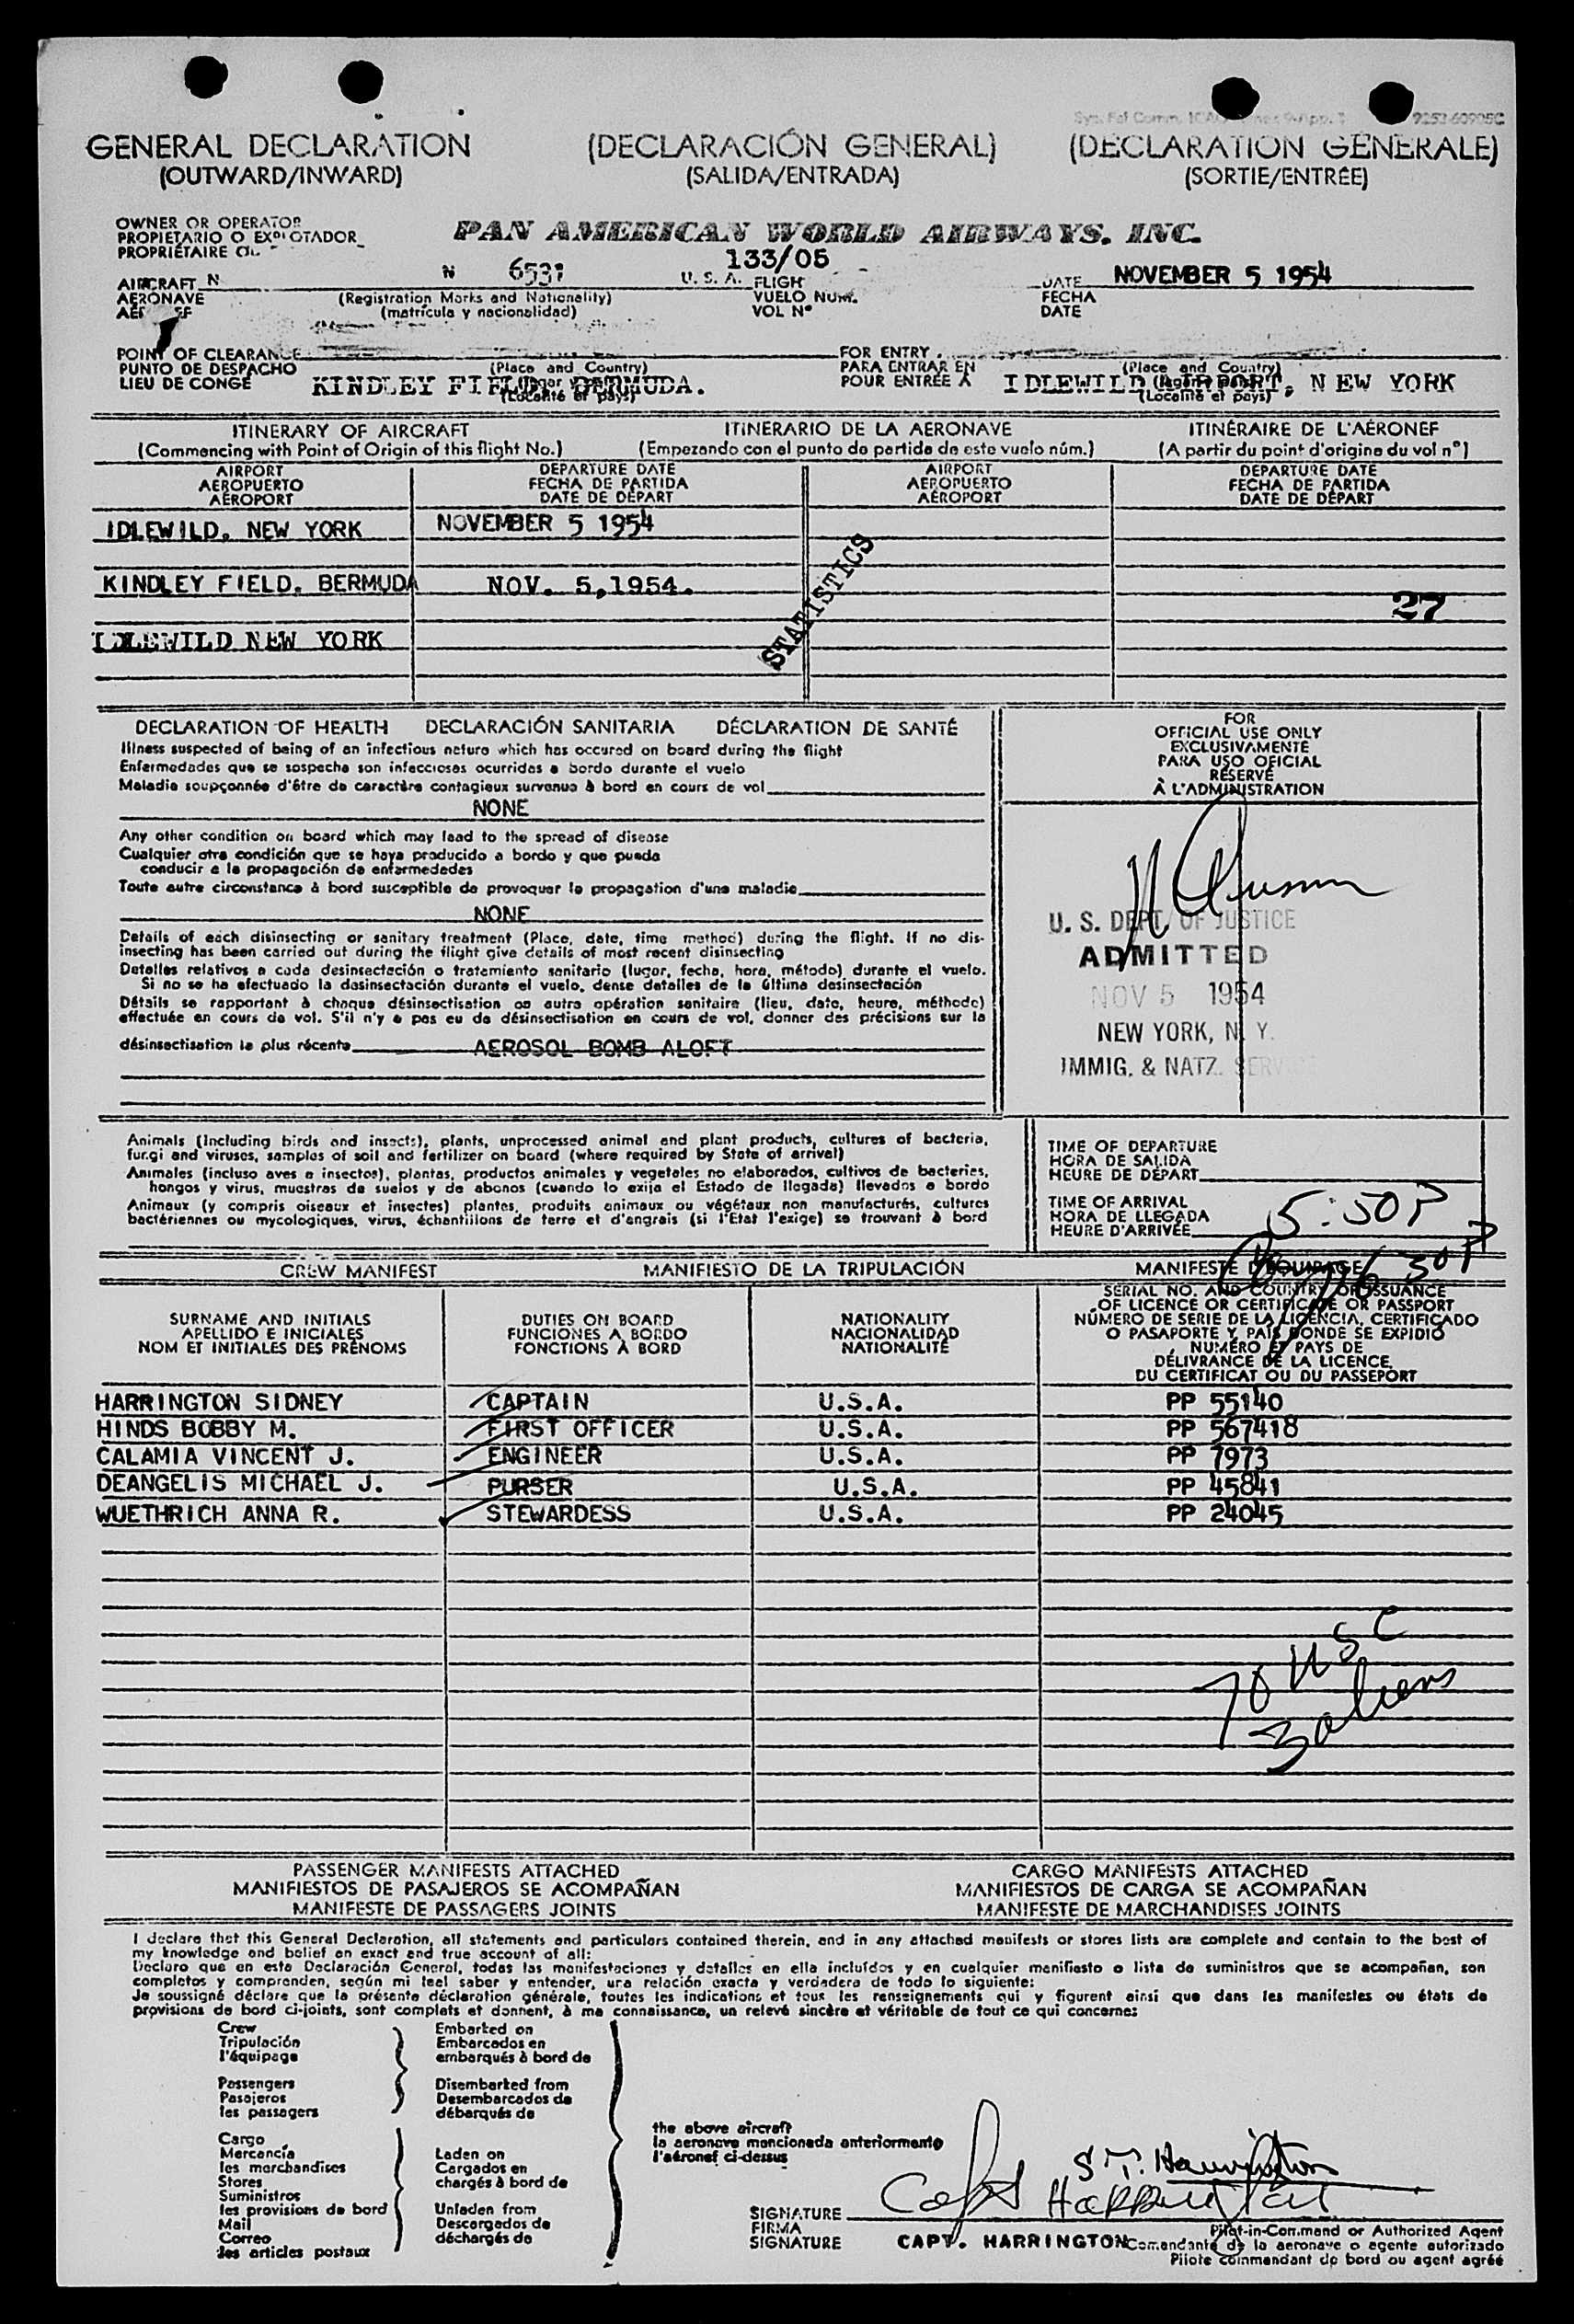 GENERAL DECLARATION (DECLARACIÓN GENERAL) (DECLARATION GÉNÉRALE)
(OUTWARD/INWARD) (SALIDA/ENTRADA) (SORTIE/ENTRÉE)
OWNER OR OPERATOR
PROPIETARIO O EXPLOTADOR
PROPRIÉTAIRE OU
PAN AMERICAN WORLD AIRWAYS, INC.
133/05
AIRCRAFT N N U.S.A. FLIGHT DATE NOVEMBER 5 1954
AERONAVE (Registration Marks and Nationality) VUELO NUM. FECHA
(matrícula y nacionalidad) VOL Nº DATE
POINT OF CLEARANCE FOR ENTRY
PUNTO DE DESPACHO (Place and Country) PARA ENTRAR EN (Place and Country)
LIEU DE CONGÉ KINDLEY FIELD, BERMUDA. POUR ENTRÉE À IDLEWILD AIRPORT, NEW YORK
(Localité et pays) (Localité et pays)
ITINERARY OF AIRCRAFT ITINERARIO DE LA AERONAVE ITINÉRAIRE DE L'AÉRONEF
(Commencing with Point of Origin of this flight No.) (Empezando con el punto de partida de este vuelo núm.) (A partir du point d'origine du vol nº)
AIRPORT DEPARTURE DATE AIRPORT DEPARTURE DATE
AEROPUERTO FECHA DE PARTIDA AEROPUERTO FECHA DE PARTIDA
AÉROPORT DATE DE DÉPART AÉROPORT DATE DE DÉPART
IDLEWILD, NEW YORK NOVEMBER 5 1954
STATISTICS
KINDLEY FIELD, BERMUDA NOV. 5,1954.
27
IDLEWILD NEW YORK
DECLARATION OF HEALTH DECLARACIÓN SANITARIA DÉCLARATION DE SANTÉ
Illness suspected of being of an infectious nature which has occured on board during the flight
Enfermedades que se sospecha son infecciosas ocurridas a bordo durante el vuelo
Maladie soupçonnée d'être de caractère contagieux survenue à bord en cours de vol
NONE
Any other condition on board which may lead to the spread of disease
Cualquier otra condición que se haya producido a bordo y que pueda
conducir a la propagación de enfermedades
Toute autre circonstance à bord susceptible de provoquer la propagation d'une maladie
NONE
Details of each disinsecting or sanitary treatment (Place, date, time method) during the flight. If no dis-
insecting has been carried out during the flight give details of most recent disinsecting
Detalles relativos a cada desinsectación o tratamiento sanitario (lugar, fecha, hora, método) durante el vuelo.
Si no se ha efectuado la desinsectación durante el vuelo, dense detalles de la última desinsectación
Détails se rapportant à chaque désinsectisation ou autre opération sanitaire (lieu, date, heure, méthode)
effectuée en cours de vol. S'il n'y a pas eu de désinsectisation en cours de vol, donner des précisions sur la
désinsectisation la plus récente AEROSOL BOMB ALOFT
FOR
OFFICIAL USE ONLY
EXCLUSIVAMENTE
PARA USO OFICIAL
RÉSERVÉ
À L'ADMINISTRATION
U. S. DEPT. OF JUSTICE
ADMITTED
NOV 5 1954
NEW YORK, N. Y.
IMMIG. & NATZ. SERVICE
Animals (Including birds and insects), plants, unprocessed animal and plant products, cultures of bacteria,
fungi and viruses, samples of soil and fertilizer on board (where required by State of arrival)
Animales (incluso aves e insectos), plantas, productos animales y vegetales no elaborados, cultivos de bacteries,
hongos y virus, muestras de suelos y de abonos (cuando lo exija el Estado de llegada) llevados a bordo
Animaux (y compris oiseaux et insectes) plantes, produits animaux ou végétaux non manufacturés, cultures
bactériennes ou mycologiques, virus, échantillons de terre et d'engrais (si l'Etat l'exige) se trouvant à bord
TIME OF DEPARTURE
HORA DE SALIDA
HEURE DE DÉPART
TIME OF ARRIVAL
HORA DE LLEGADA
HEURE D'ARRIVÉE 5:50P
630P
CREW MANIFEST MANIFIESTO DE LA TRIPULACIÓN MANIFESTE D'ÉQUIPAGE
SURNAME AND INITIALS
APELLIDO E INICIALES
NOM ET INITIALES DES PRÉNOMS
DUTIES ON BOARD
FUNCIONES A BORDO
FONCTIONS À BORD
NATIONALITY
NACIONALIDAD
NATIONALITÉ
SERIAL NO. AND COUNTRY OF ISSUANCE
OF LICENCE OR CERTIFICATE OR PASSPORT
NÚMERO DE SERIE DE LA LICENCIA, CERTIFICADO
O PASAPORTE Y PAÍS DONDE SE EXPIDIÓ
NUMÉRO ET PAYS DE
DÉLIVRANCE DE LA LICENCE,
DU CERTIFICAT OU DU PASSEPORT
HARRINGTON SIDNEY CAPTAIN U.S.A. PP 55140
HINDS BOBBY M. FIRST OFFICER U.S.A. PP 567418
CALAMIA VINCENT J. ENGINEER U.S.A. PP 7973
DEANGELIS MICHAEL J. PURSER U.S.A. PP 45841
WUETHRICH ANNA R. STEWARDESS U.S.A. PP 24045
70 USC
3 aliens
PASSENGER MANIFESTS ATTACHED CARGO MANIFESTS ATTACHED
MANIFIESTOS DE PASAJEROS SE ACOMPAÑAN MANIFIESTOS DE CARGA SE ACOMPAÑAN
MANIFESTE DE PASSAGERS JOINTS MANIFESTE DE MARCHANDISES JOINTS
I declare that this General Declaration, all statements and particulars contained therein, and in any attached manifests or stores lists are complete and contain to the best of
my knowledge and belief an exact and true account of all:
Declaro que en esta Declaración General, todas las manifestaciones y detalles en ella incluídos y en cualquier manifiesto o lista de suministros que se acompañan, son
completos y comprenden, según mi leel saber y entender, una relación exacta y verdadera de todo lo siguiente:
Je soussigné déclare que la présente déclaration générale, toutes les indications et tous les renseignements qui y figurent ainsi que dans les manifestes ou états de
provisions de bord ci-joints, sont complets et donnent, à ma connaissance, un relevé sincère et véritable de tout ce qui concerne:
Crew Embarked on
Tripulación Embarcados en
l'équipage embarqués à bord de
Passengers Disembarked from
Pasajeros Desembarcados de
les passagers débarqués de
the above aircraft
la aeronave mencionada anteriormente
l'aéronef ci-dessus
Cargo
Mercancía Laden on
les marchandises Cargados en
Stores chargés à bord de
Suministros
les provisions de bord Unladen from
Mail Descargados de
Correo déchargés de
les articles postaux
S. T. Harrington
SIGNATURE Capt Harrington
FIRMA
SIGNATURE CAPT. HARRINGTON
Pilot-in-Command or Authorized Agent
Comandante de la aeronave o agente autorizado
Pilote commandant de bord ou agent agréé